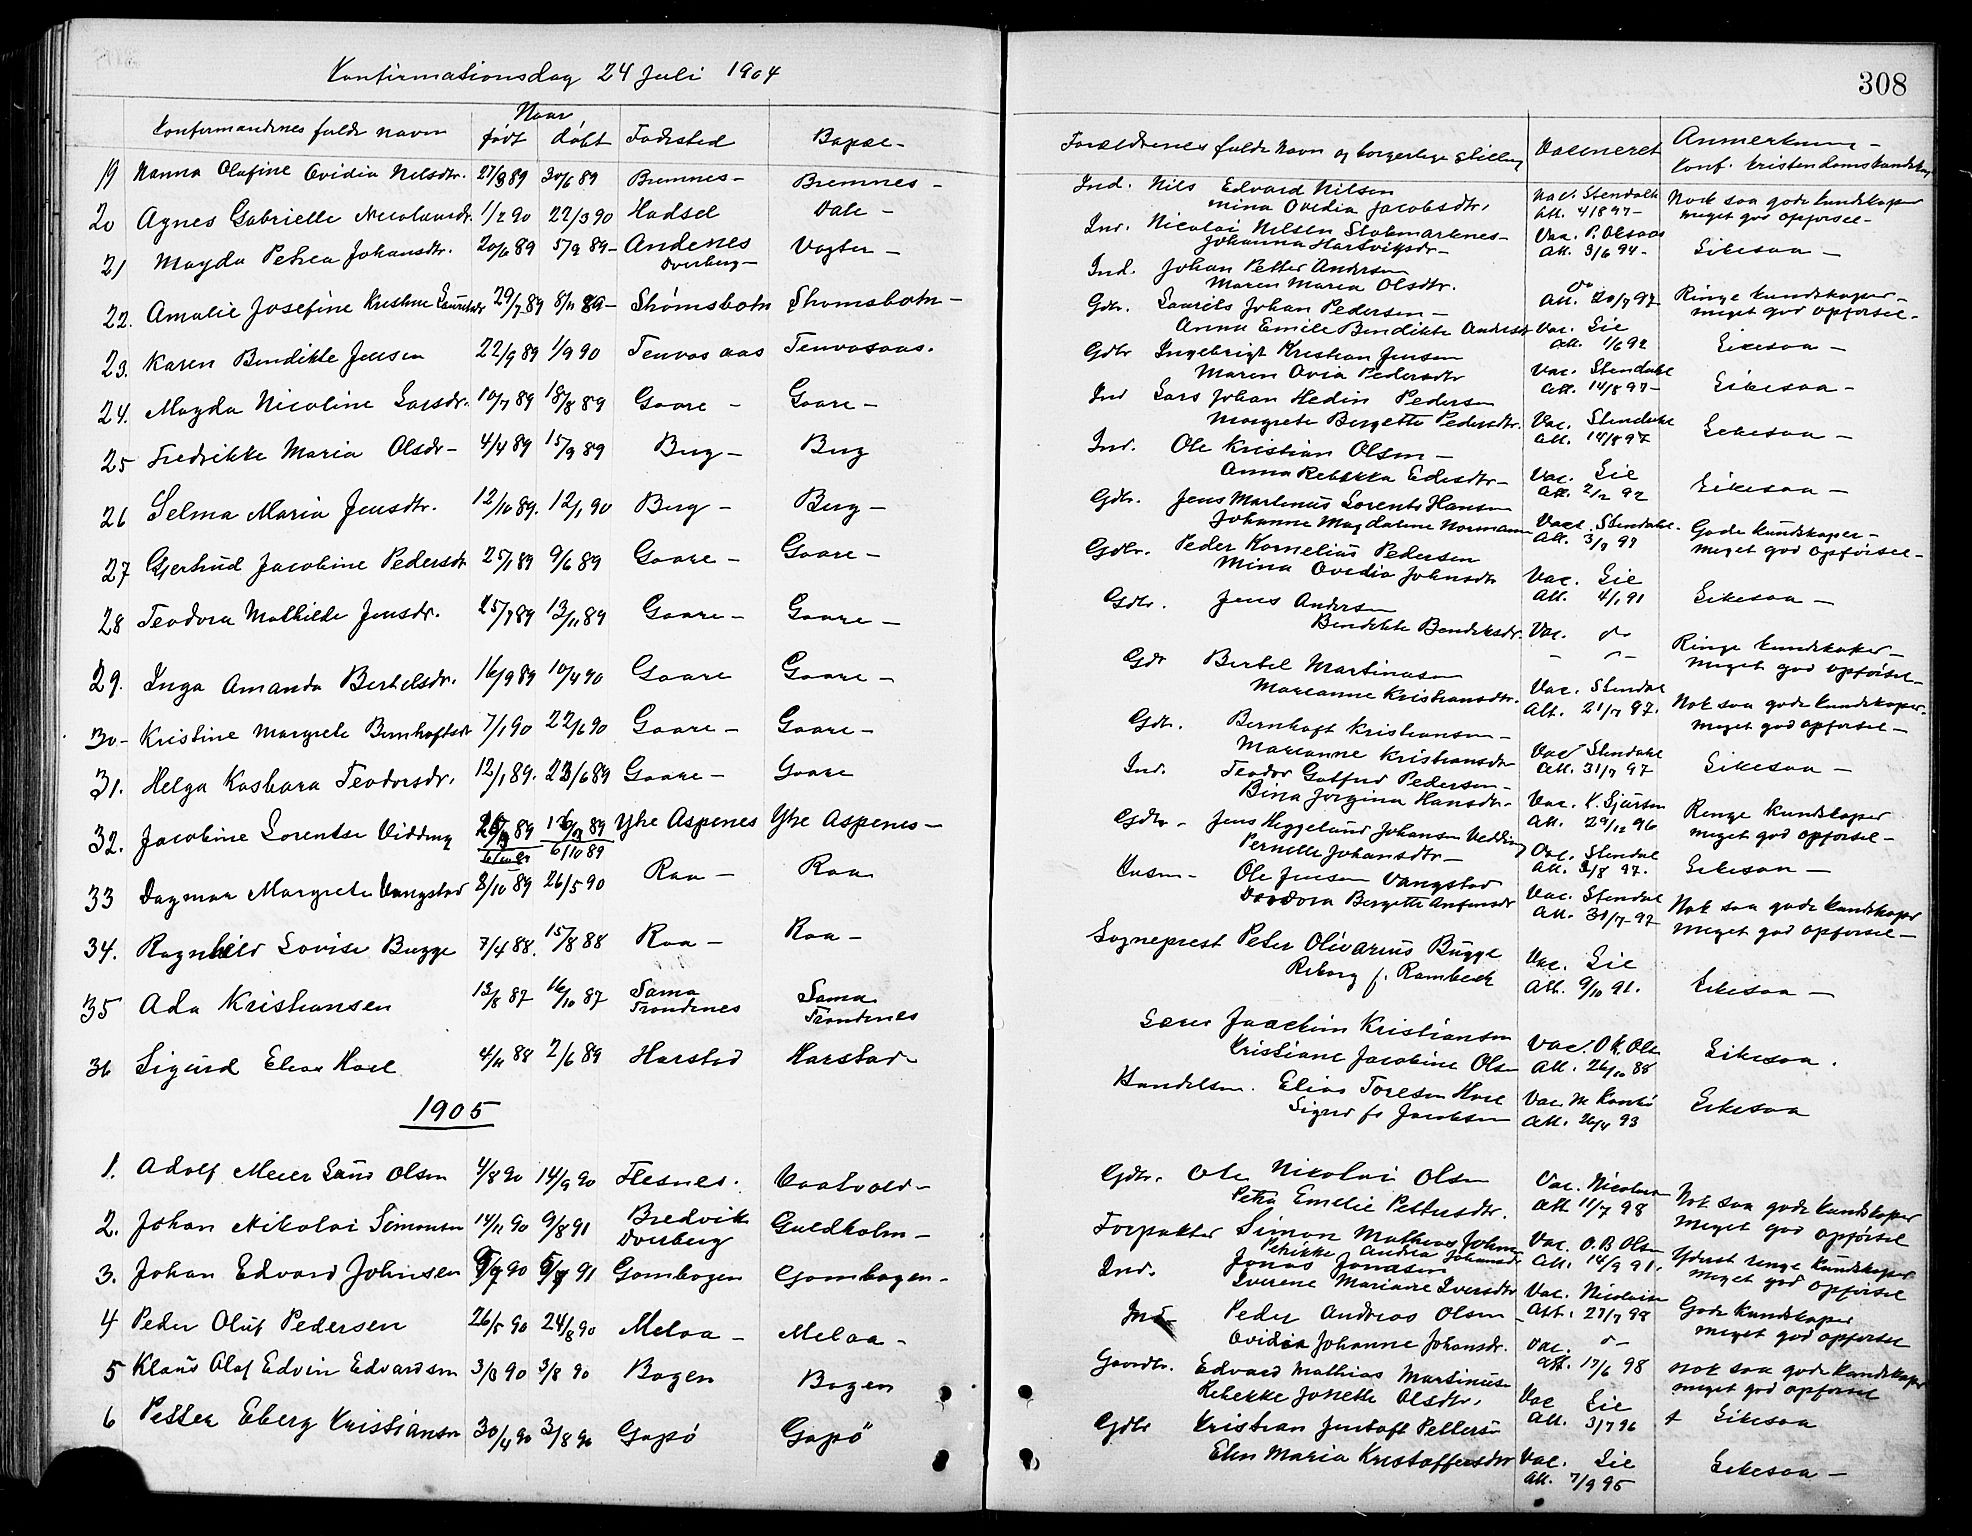 308
Konfirmationsdag 24 Juli 1904
Konfirmandernes fulde navn Naar født døbt Fødested Bopæl-
19 Nanna Olufine Ovidia Nilsdtr. 27/3 89 30/6 89 Bremnes- Bremnes-
20 Agnes Gabrielle Nicolaisdr. 1/2 90 22/3 90 Hadsel Dale-
21 Magda Petrea Johansdtr. 20/6 89 5/9 89- Andenes Dverberg- Vogter-
22. Amalie Josefine Kristine Lauritsdr 29/7 89 8/11 89- Skømsbotn Skomsbotn-
23. Karen Bendikte Jensen 22/9 89 1/9 90 Tenvasaas Tenvasaas.
24. Magda Nicoline Larsdr. 10/7 89 18/8 89 Gaare- Gaare-
25 Fredrikke Maria Olsdr- 4/4 89 15/9 89 Berg- Berg
26 Selma Maria Jensdtr. 12/10 89. 12/1 90 Berg- Berg-
27 Gjertrud Jacobine Pedersdt 25/1 89 9/6 89 Gaare- Gaare-
28 Teodora Mathilde Jensdr. 25/7 89 13/11 89 Gaare- Gaare-
29. Inga Amanda Bertelsdr. 16/9 89 10/4 90 Gaare Gaare-
30- Kristine Margrete Bernhoftsdr 7/1 90 22/6 90 Gaare- Gaare-
31. Helga Kasbara Teodorsdr. 12/1 89. 23/6 89 Gaare- Gaare
32. Jacobine Lorentse Vidding 89 89 Ytre Aspenes Ytre Aspenes-
6/10 89
33 Dagmar Margrete Vangstad 8/10 89 26/5 90 Raa- Raa
34. Ragnhild Lovise Bugge 7/4 88. 15/8 88 Raa- Raa-
35 Ada Kristiansen 13/8 87 16/10 87 Sama Trondenes Sama Trondenes
36 Sigurd Elias Hoel 4/11 88 2/6 89 Harstad Harstad
1905
1. Adolf Meier Laus Olsen 4/8 90 14/9 90 Flesnes. Vaatvold-
2. Johan Nikolai Simonsen 14/11 90 9/8 91 Bredvik Dverberg Guldholm-
3. Johan Edvard Johnsen 90 91 Gombogen Gombogen-
4 Peder Oluf Pedersen 26/5 90 24/8 90 Melaa- Melaa-
5 Klaus Olaf Edvin Edvardsen 3/3 90 3/8 90 Bogen Bogen
6 Petter Eberg Kristiansn 30/4 90 3/8 90 Gapö Gapö
Forældrenes fulde Navn og borgerlige stilling Vaccineret Anmerkning-
Konf. kristendomskundskap
Ind. Nils Edvard Nilsen Vac. Stendahl Nock saa gode kundskaper
Mina Ovidia Jacobsdtr. Att. 4/8 97- meget god opførsel-
Ind. Nicolai Nilsen Stokmarknes- Vac. P. Olsaas
Johanna Hartvigsdr- Att. 3/6 94- Likesaa-
Ind. Johan Petter Andersen do
Maren Maria Olsdtr. Att. 20/7 97- Ringe kundskaper-
Gdbr. Laurits Johan Pedersen- meget god opførsel-
Anna Emilie Bendikte Andersdt Vac. Lie
Att. 1/6 92 Likesaa-
Gdbr Ingebrigt Kristian Jensen
Maren Ovia Pedersdtr Vac. Stendahl
Att. 14/8 97- Likesaa-
Ind Lars Johan Hedin Pedersen
Margrete Bergette Pedersdtr. Vac. Stendahl
Att. 14/8 97 Likesaa-
Ind. Ole Kristian Olsen-
Anna Rebekka Edisdtr- Vac. Lie
Att. 2/12 92 Likesaa-
Gdbr. Jens Martinus Lorents Hansen
Johanne Magdalene Normann Vacc. Stendahl. Gode kundskaper-
Att. 3/9 97 meget god opførsel-
Gdbr. Peder Kornelius Pedersen
Mina Ovedia Johnsdtr Vac. Lie
Att. 4/1 91 Likesaa-
Gdbr. Jens Andersen
Bendikte Bendiksdr. Vac. do
Ringe kundskaper-
meget god opførsel-
Gdr Bertel Martinusen
Marianne Kristiansdtr. Vac. Stendal Nok saa gode kundskaper.
Att. 21/7 97. meget god opførsel-
Gdbr. Bernhoft Kristiansen-
Marianne Kristiansdtr Vac Stendahl
Att. 31/7 97 Likesaa-
Ind. Teodor Gotfred Pedersen-
Bina Jorgina Hansdtr- Vac. K. Sjursen Renge kundskaper
Att. 29/12 96 meget god opførsel-
Gdbr- Jens Heggelund Johansen Vedding
Pernille Johansdtr- Vac. Stendal
Att. 3/8 97. Likesaa-
Husm- Ole Jensen Vangstad Vac. Stendal
Dordora Bergette Antonsdr Att. 31/7 97 Nok saa gode kundskaper
meget god opførsel-
Sogneprest Peter Olivarius Bugge
Reborg f. Rambeck Vac. Lie
Att. 9/10 91. Likesaa-
Lærer Joachim Kristiansen
Kristiane Jacobine Olsen Vac. O K. Olsn Likesaa.
Att. 26/10 88
Handelsm. Elias Toresen Hoel Vac. M
Sigrid f. Jacobsen Att. 26/4 93 Likesaa
Gdbr. Ole Nikolai Olsen Vac. Nicolaisn
Petra Emelie Pettersdtr. Att 11/7 98 Nok saa gode kundskaper
meget god opførsel
Forpakter Simon Mathias Johns Vac. O.B Olsn
Petrikke Andrea Johansdr Att. 14/9 91. Yderst renge kundskaper
Ind. Jonas Jonassen meget god opførsel
Iverene Mariane Iversdtr Vac. Nicolaisn
Att. 27/7 98 Gode kundskaper
Ind Peder Andreas Olsen meget god opførsel
Ovidia Johanne Johansdr. Vac. do
Att. 17/6 98
Gaardbr. Edvard Mathias Martinusn nok saa gode kundskaper
Rebekke Jonette Olsdtr. Vac Lie meget god opførsel
Att. 3/7 96 Likesaa
Gdbr Kristian Jentoft Petters
Elen Maria Kristoffersdtr Vac. Lie
Att. 7/9 95 Likesaa-